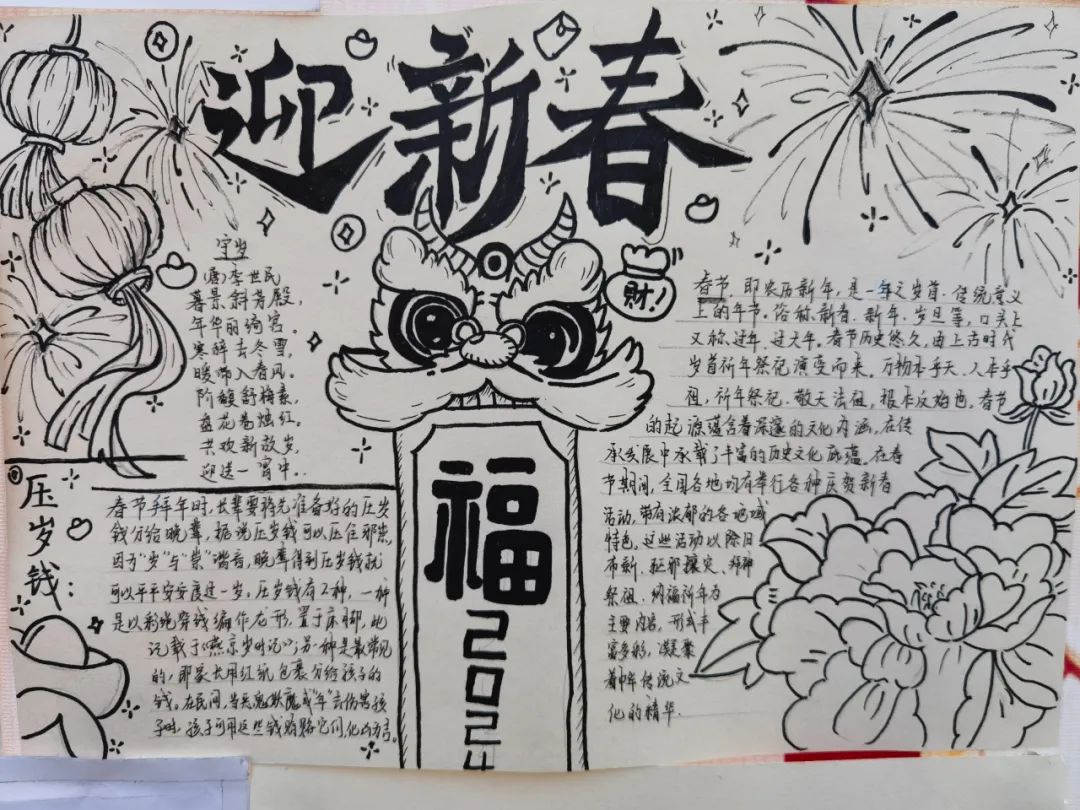 迎新春
守岁
(唐)李世民
暮景斜芳殿,
年华丽绮宫。
寒辞去冬雪,
暖带入春风。
阶馥舒梅素,
盘花卷烛红。
共欢新故岁,
迎送一宵中。
财!
福
2024
春节,即农历新年,是一年之岁首、传统意义
上的年节。俗称新春、新年、岁旦等,口头上
又称过年、过大年。春节历史悠久,由上古时代
岁首祈年祭祀演变而来。万物本乎天、人本乎
祖,祈年祭祀、敬天法祖,报本反始也。春节
的起源蕴含着深邃的文化内涵,在传
承发展中承载了丰富的历史文化底蕴。在春
节期间,全国各地均有举行各种庆贺新春
活动,带有浓郁的各地域
特色。这些活动以除旧
布新、驱邪攘灾、拜神
祭祖、纳福祈年为
主要内容,形式丰
富多彩,凝聚
着中华传统文
化的精华.
压岁钱:
春节拜年时,长辈要将先准备好的压岁
钱分给晚辈,据说压岁钱可以压住邪祟,
因为"岁"与"祟"谐音,晚辈得到压岁钱就
可以平平安安度过一岁。压岁钱有二种,一种
是以彩绳穿钱编作龙形,置于床脚,此
记载于《燕京岁时记》;另一种是最常见
的,即家长用红纸包裹分给孩子的
钱。在民间,当恶鬼妖魔或"年"去伤害孩
子时,孩子可用这些钱贿赂它们,化凶为吉。